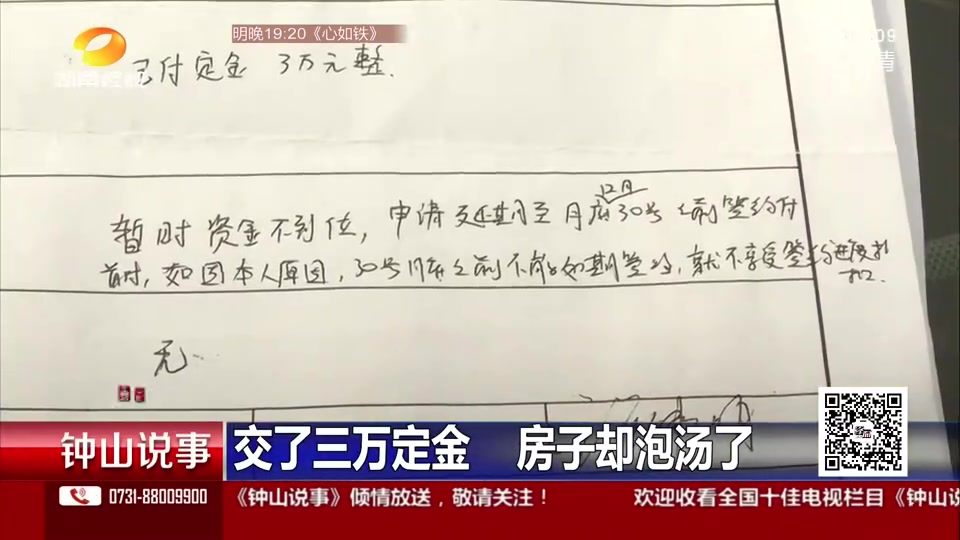 明晚19:20《心如铁》
09
清
湖南经视
已付定金 3万元整.
12月
暂时资金不到位,申请延期至月底30号之前签约付
首付,如因本人原因,30号月底之前不能如期签约,就不享受签约进度折
扣.
无.
钟山说事
交了三万定金 房子却泡汤了
0731-88009900
《钟山说事》倾情放送，敬请关注！
欢迎收看全国十佳电视栏目《钟山说